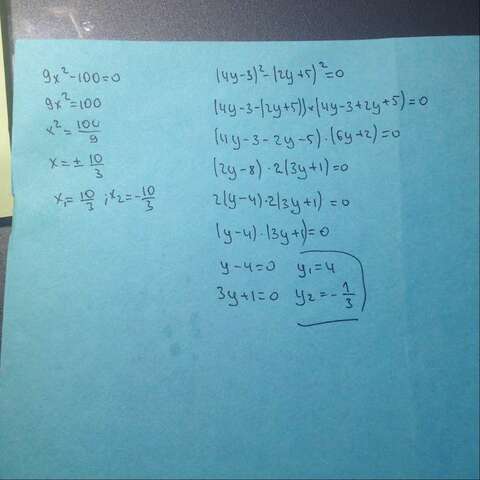 9x²-100=0
9x²=100
x²=100/9
x=±10/3
x₁=10/3 ; x₂=-10/3
(4y-3)²-(2y+5)²=0
(4y-3-(2y+5))*(4y-3+2y+5)=0
(4y-3-2y-5)·(6y+2)=0
(2y-8)·2(3y+1)=0
2(y-4)·2(3y+1)=0
(y-4)·(3y+1)=0
y-4=0 y₁=4
3y+1=0 y₂=-1/3